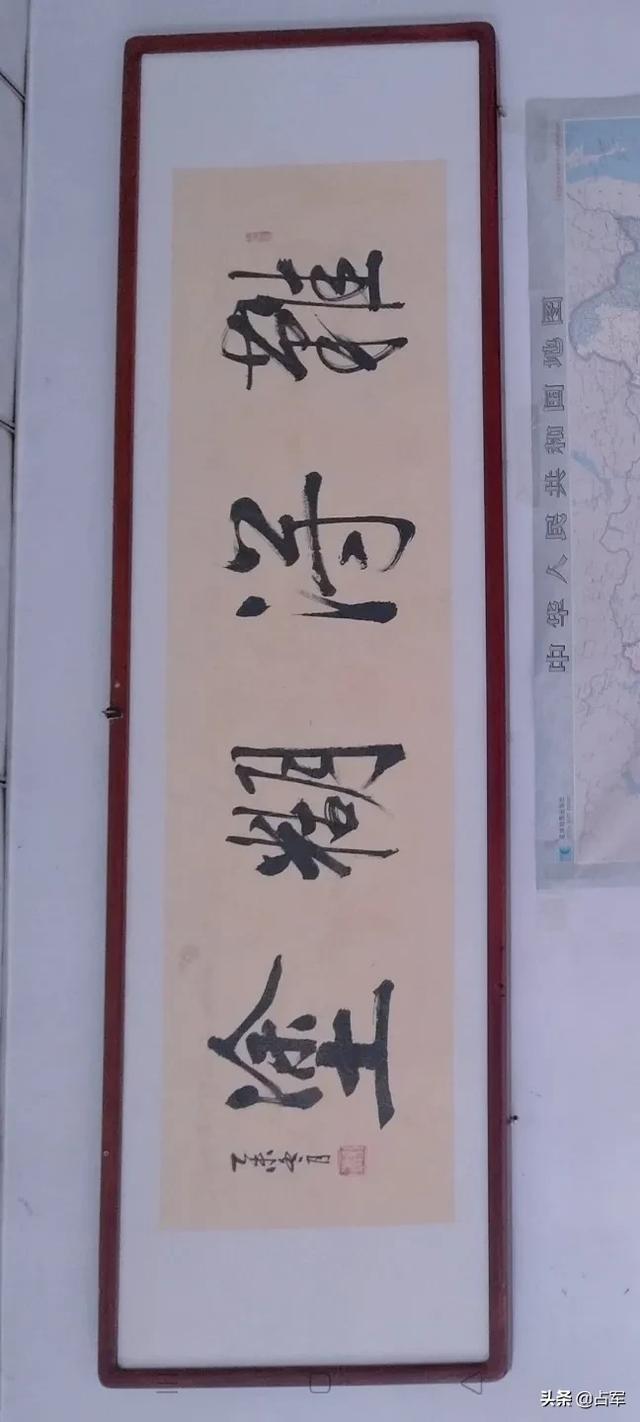 難得糊塗
中华人民共和国地图
头条 @占军